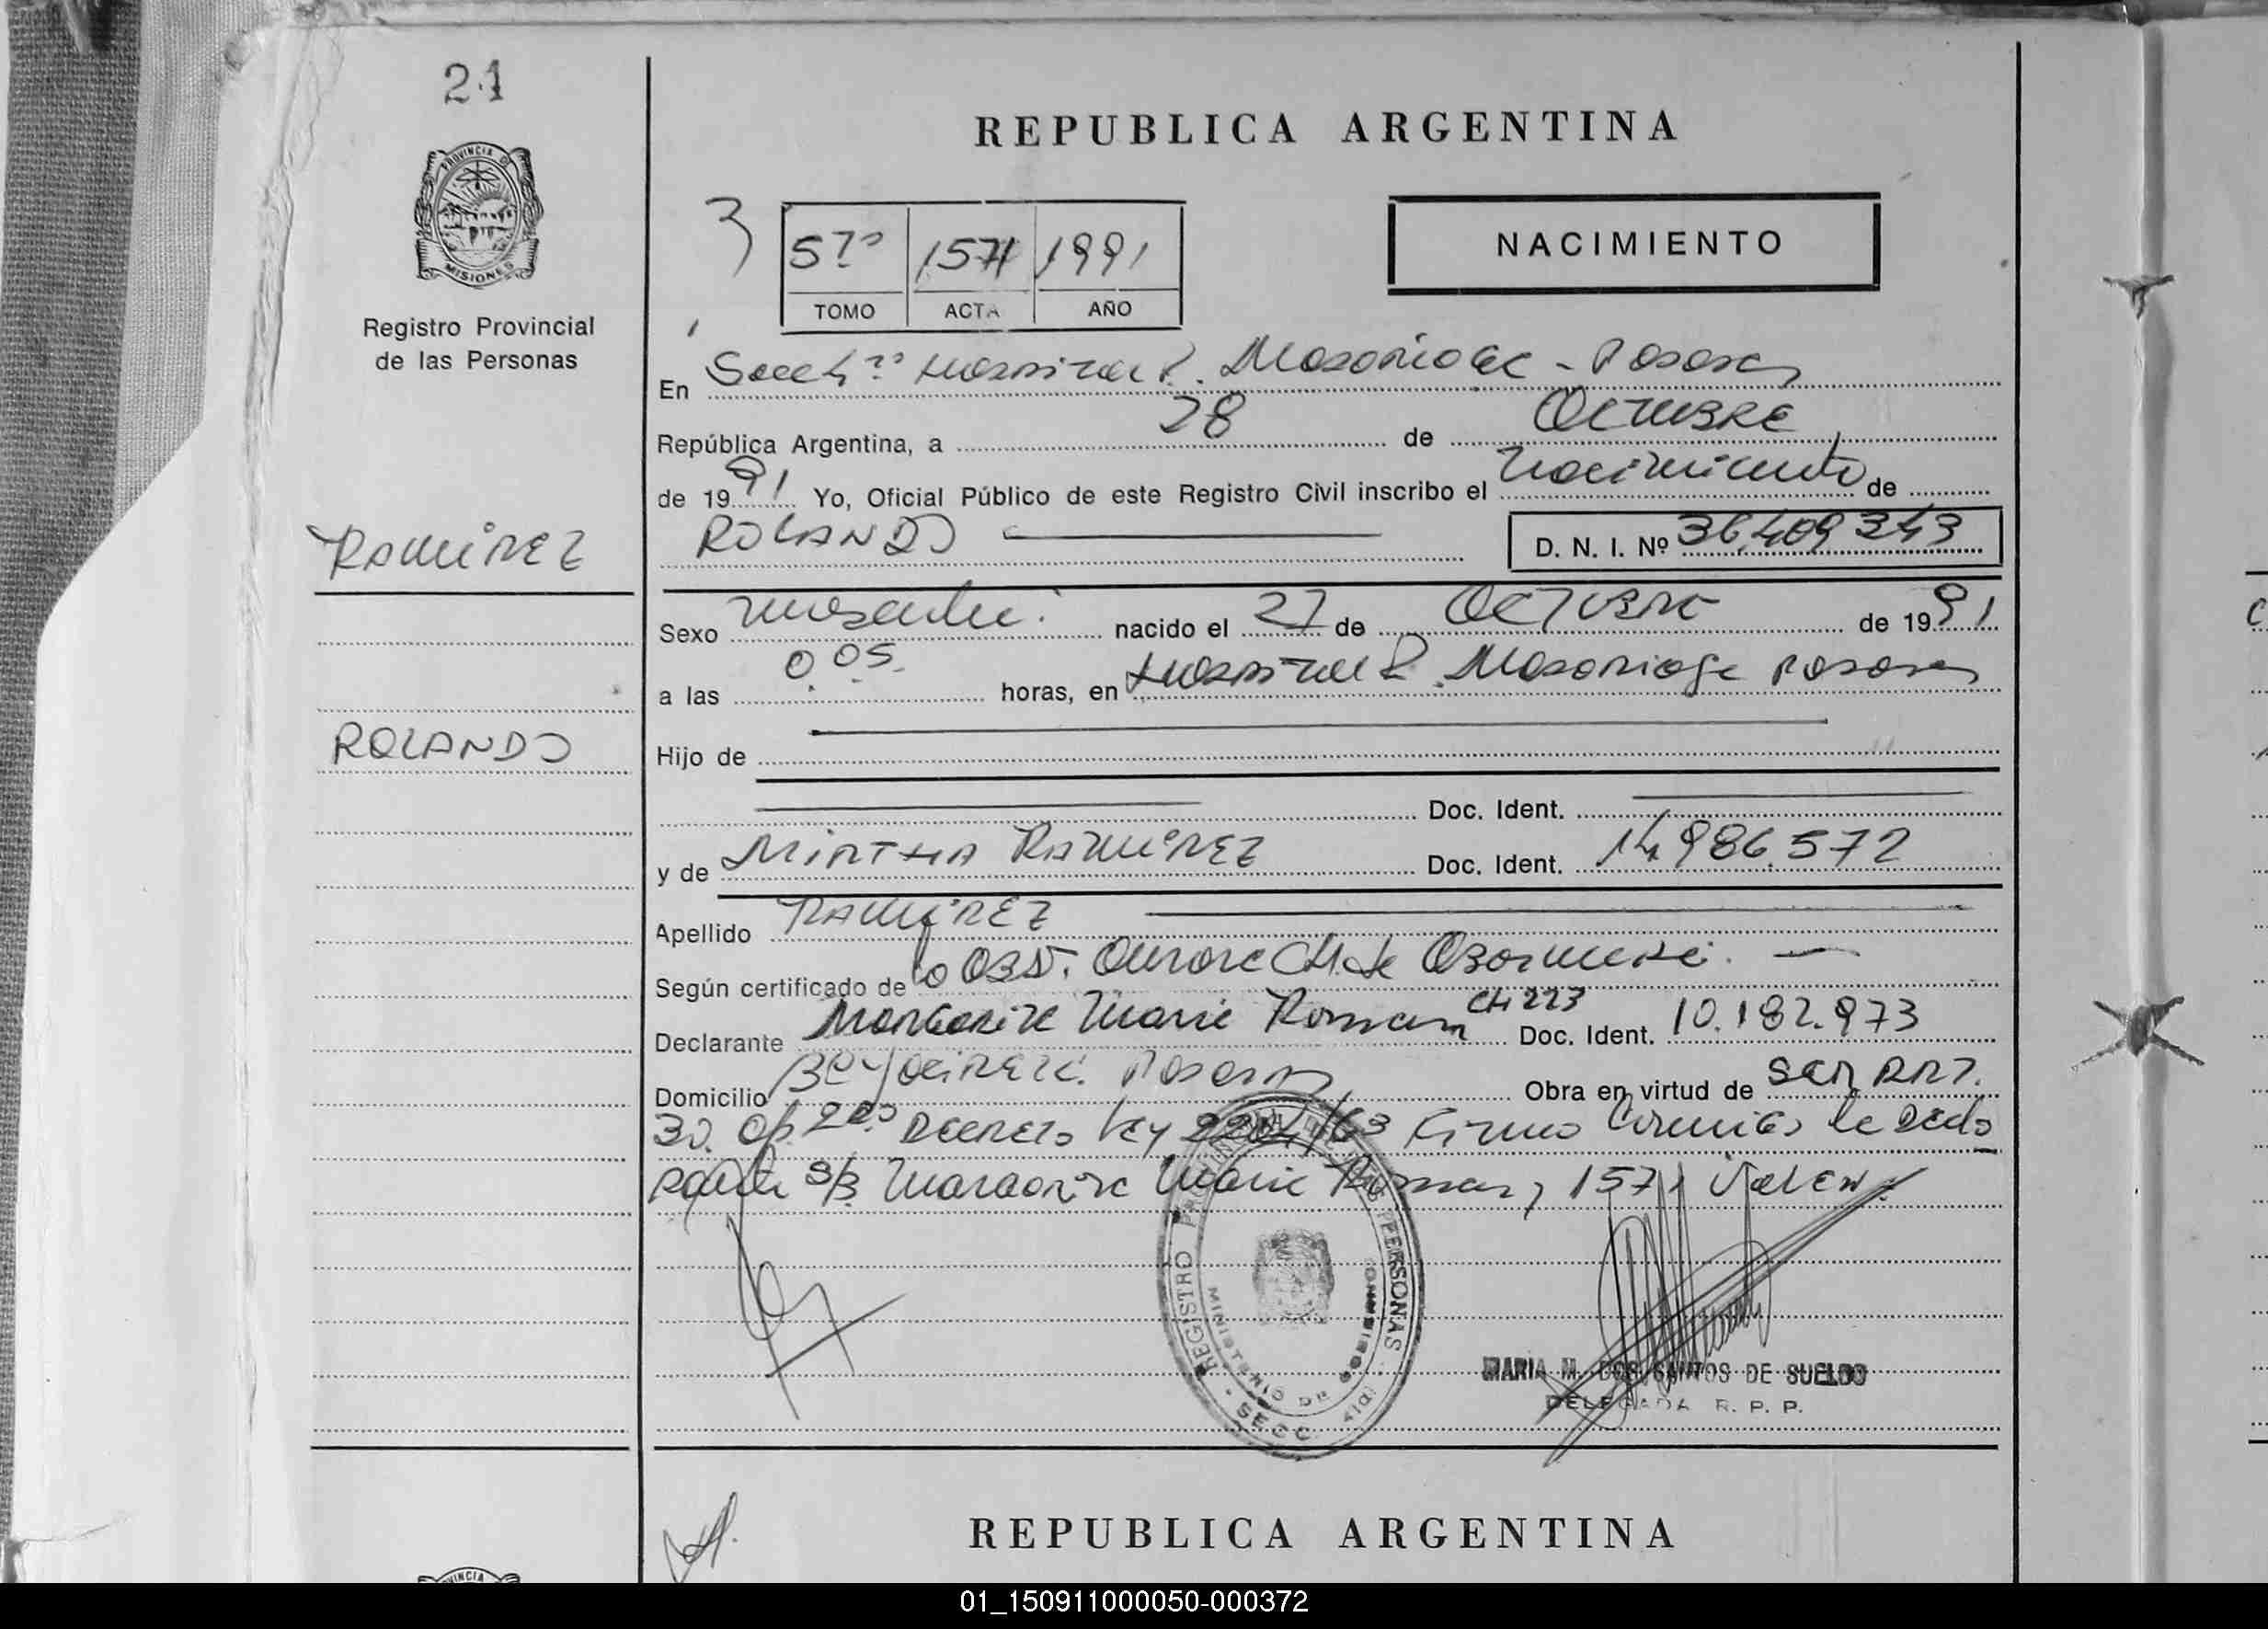 21
PROVINCIA DE
MISIONES
Registro Provincial
de las Personas
RAMIREZ
ROLANDO
REPUBLICA ARGENTINA
3
5to 1571 1991
TOMO ACTA AÑO
NACIMIENTO
En Secc 4ta Hospital R. Madariaga - Posadas
República Argentina, a 28 de OCTUBRE
de 1991 Yo, Oficial Público de este Registro Civil inscribo el nacimiento de
ROLANDO D. N. I. Nº 36.409.343
Sexo masculino nacido el 27 de OCTUBRE de 1991
a las 0.05 horas, en Hospital R. Madariaga Posadas
Hijo de
Doc. Ident.
y de MIRTHA RAMIREZ Doc. Ident. 14.986.572
Apellido RAMIREZ
Según certificado de la OBST. CH. de
Declarante Margarita Maria Roman Doc. Ident. 10.182.973
CH 223
Domicilio Posadas Obra en virtud de
30. Ap. 2do Decreto Ley 2204/63 Firma
s/ Margarita Maria Roman, 1571 Valen.
REGISTRO PROVINCIAL DE LAS PERSONAS
MINISTERIO DE GOBIERNO
SECC. 4ta
MARIA M. DOS SANTOS DE SUELDO
DELEGADA R. P. P.
REPUBLICA ARGENTINA
01_150911000050-000372